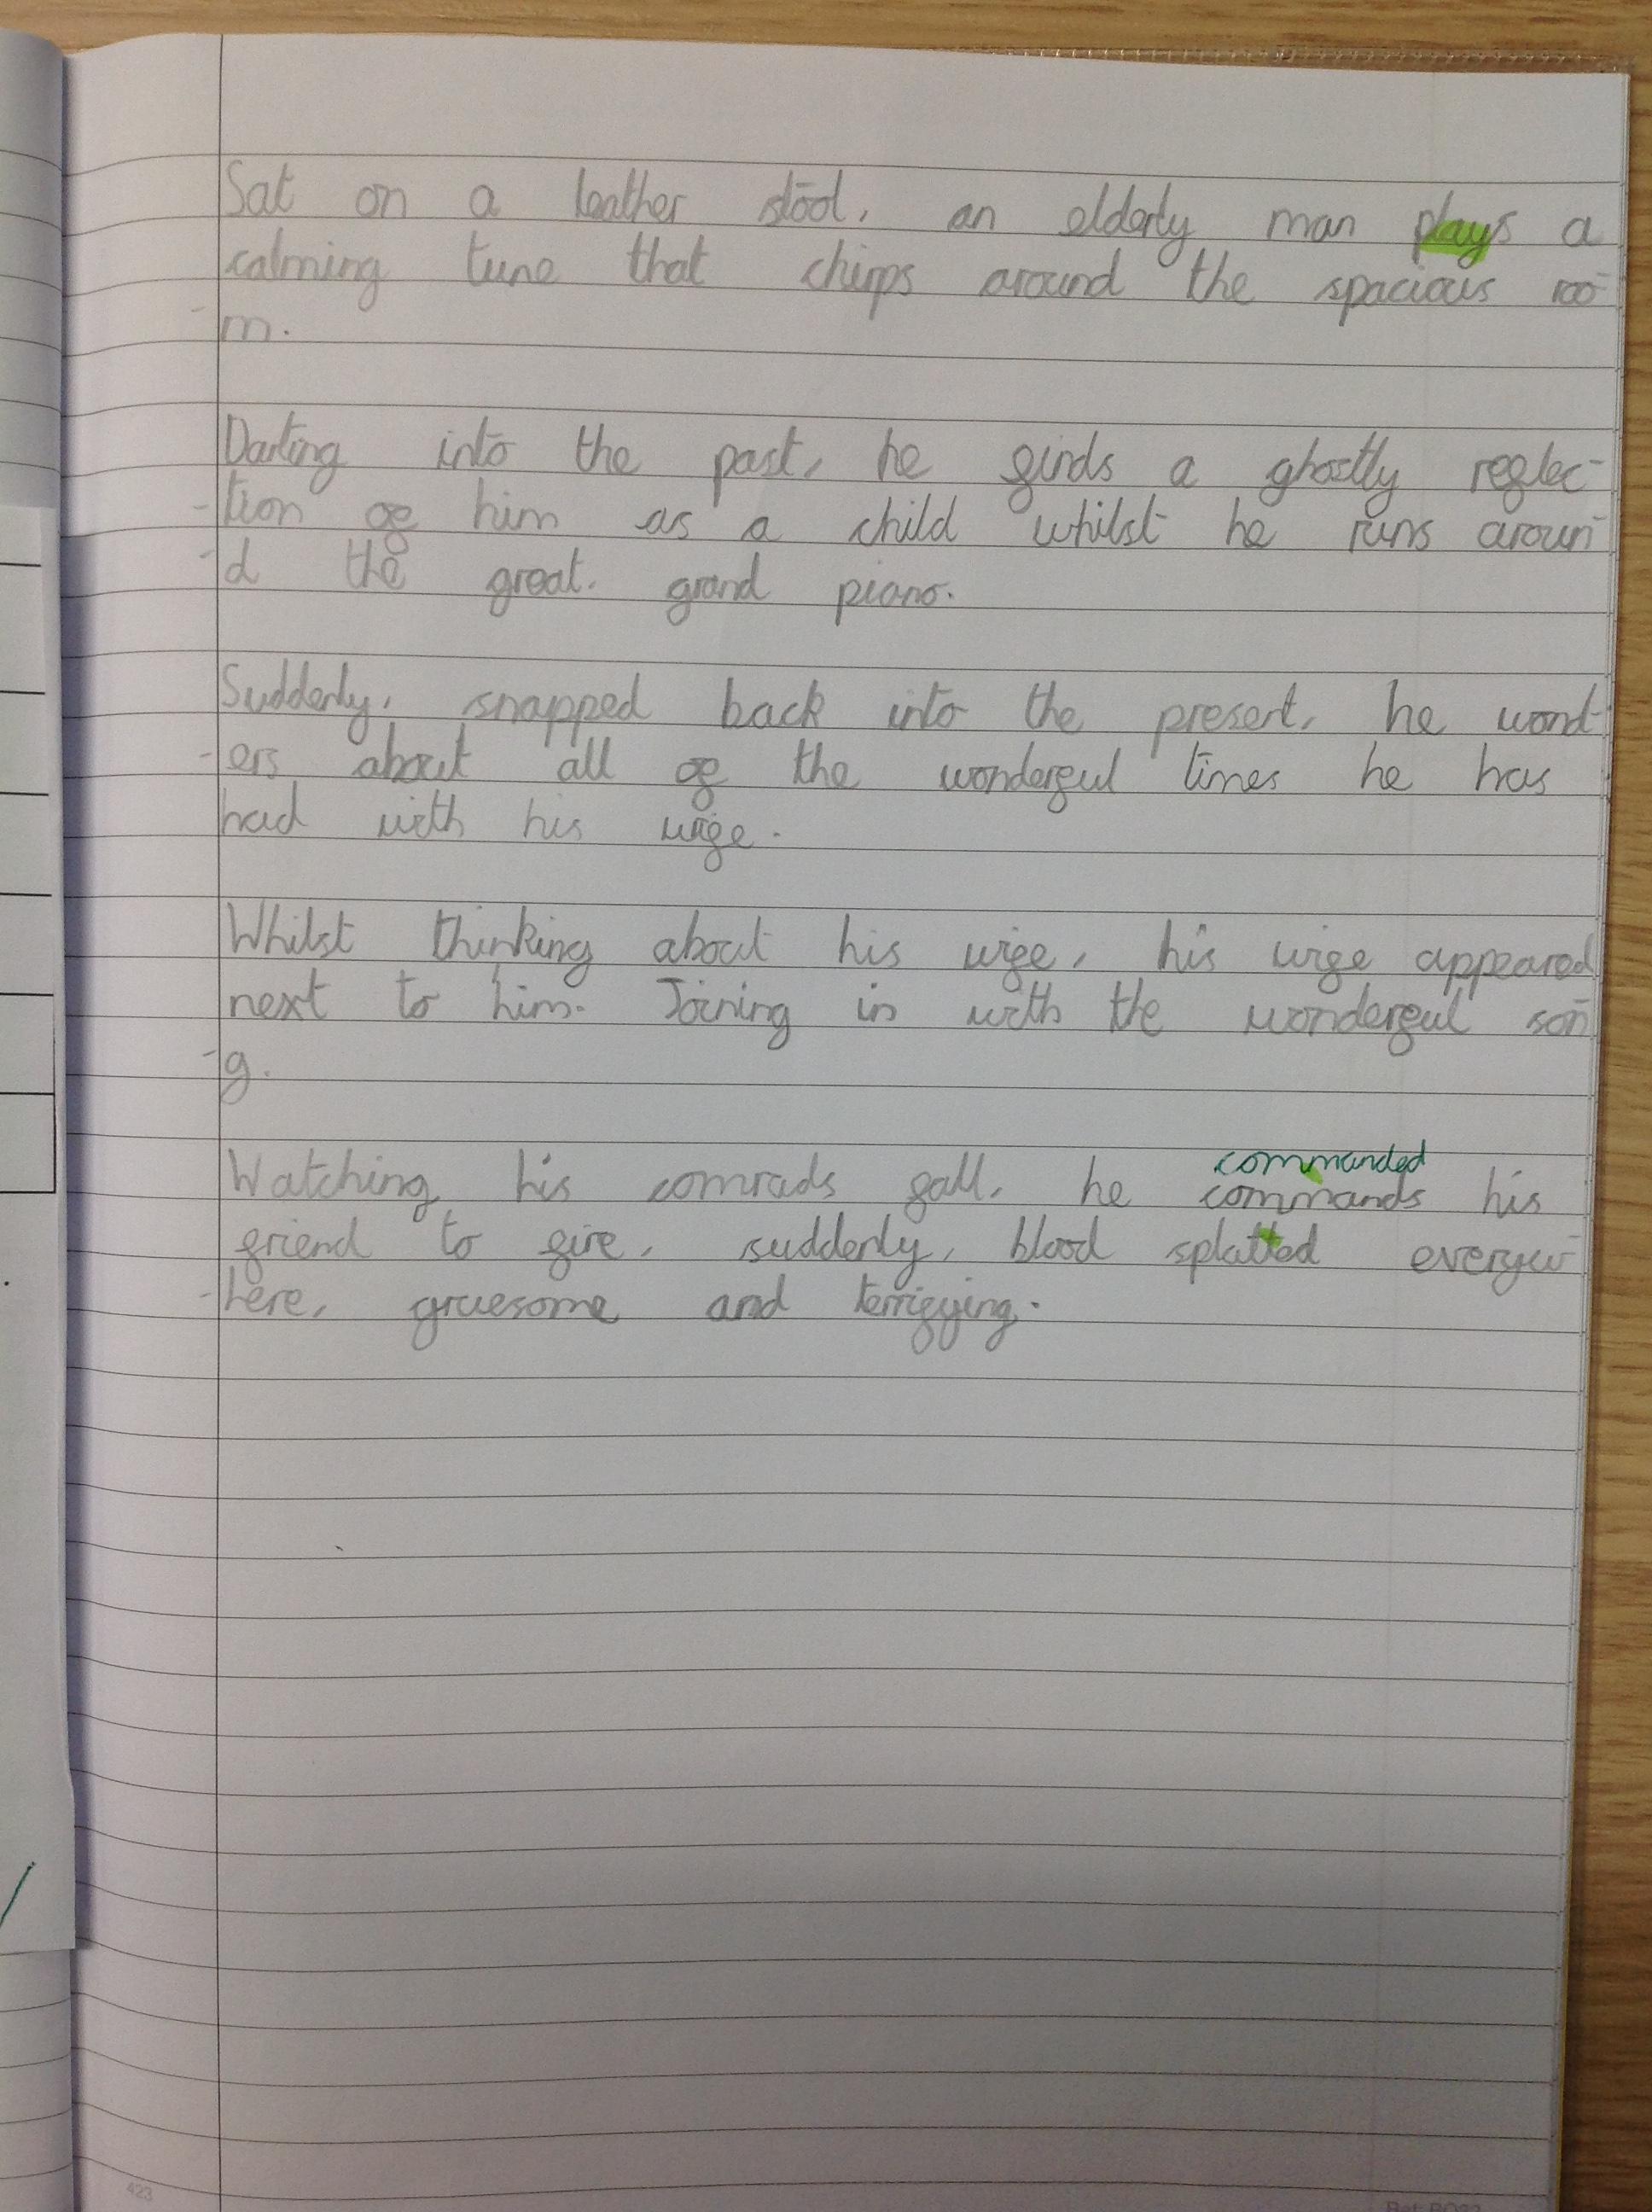 Sat on a leather stool, an elderly man plays a
calming tune that chirps around the spacious roo-
-m.
Darting into the past, he finds a ghostly reflec-
-tion of him as a child whilst he runs aroun-
-d the great, grand piano.
Suddenly, snapped back into the present, he wond-
-ers about all of the wonderful times he has
had with his wife.
Whilst thinking about his wife, his wife appeared
next to him. Joining in with the wonderful son-
-g.
commanded
Watching his comrads fall, he commands his
friend to fire, suddenly, blood splatted everyw-
-here, gruesome and terrifying.
423